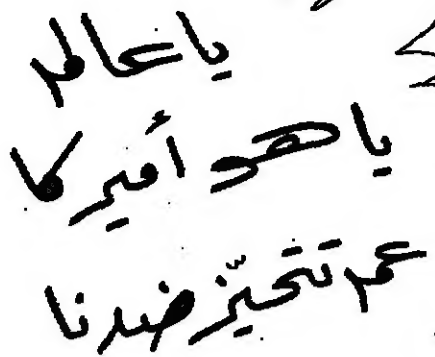 يا عالم
يا هو أميركا
عم تتحيّز ضدنا